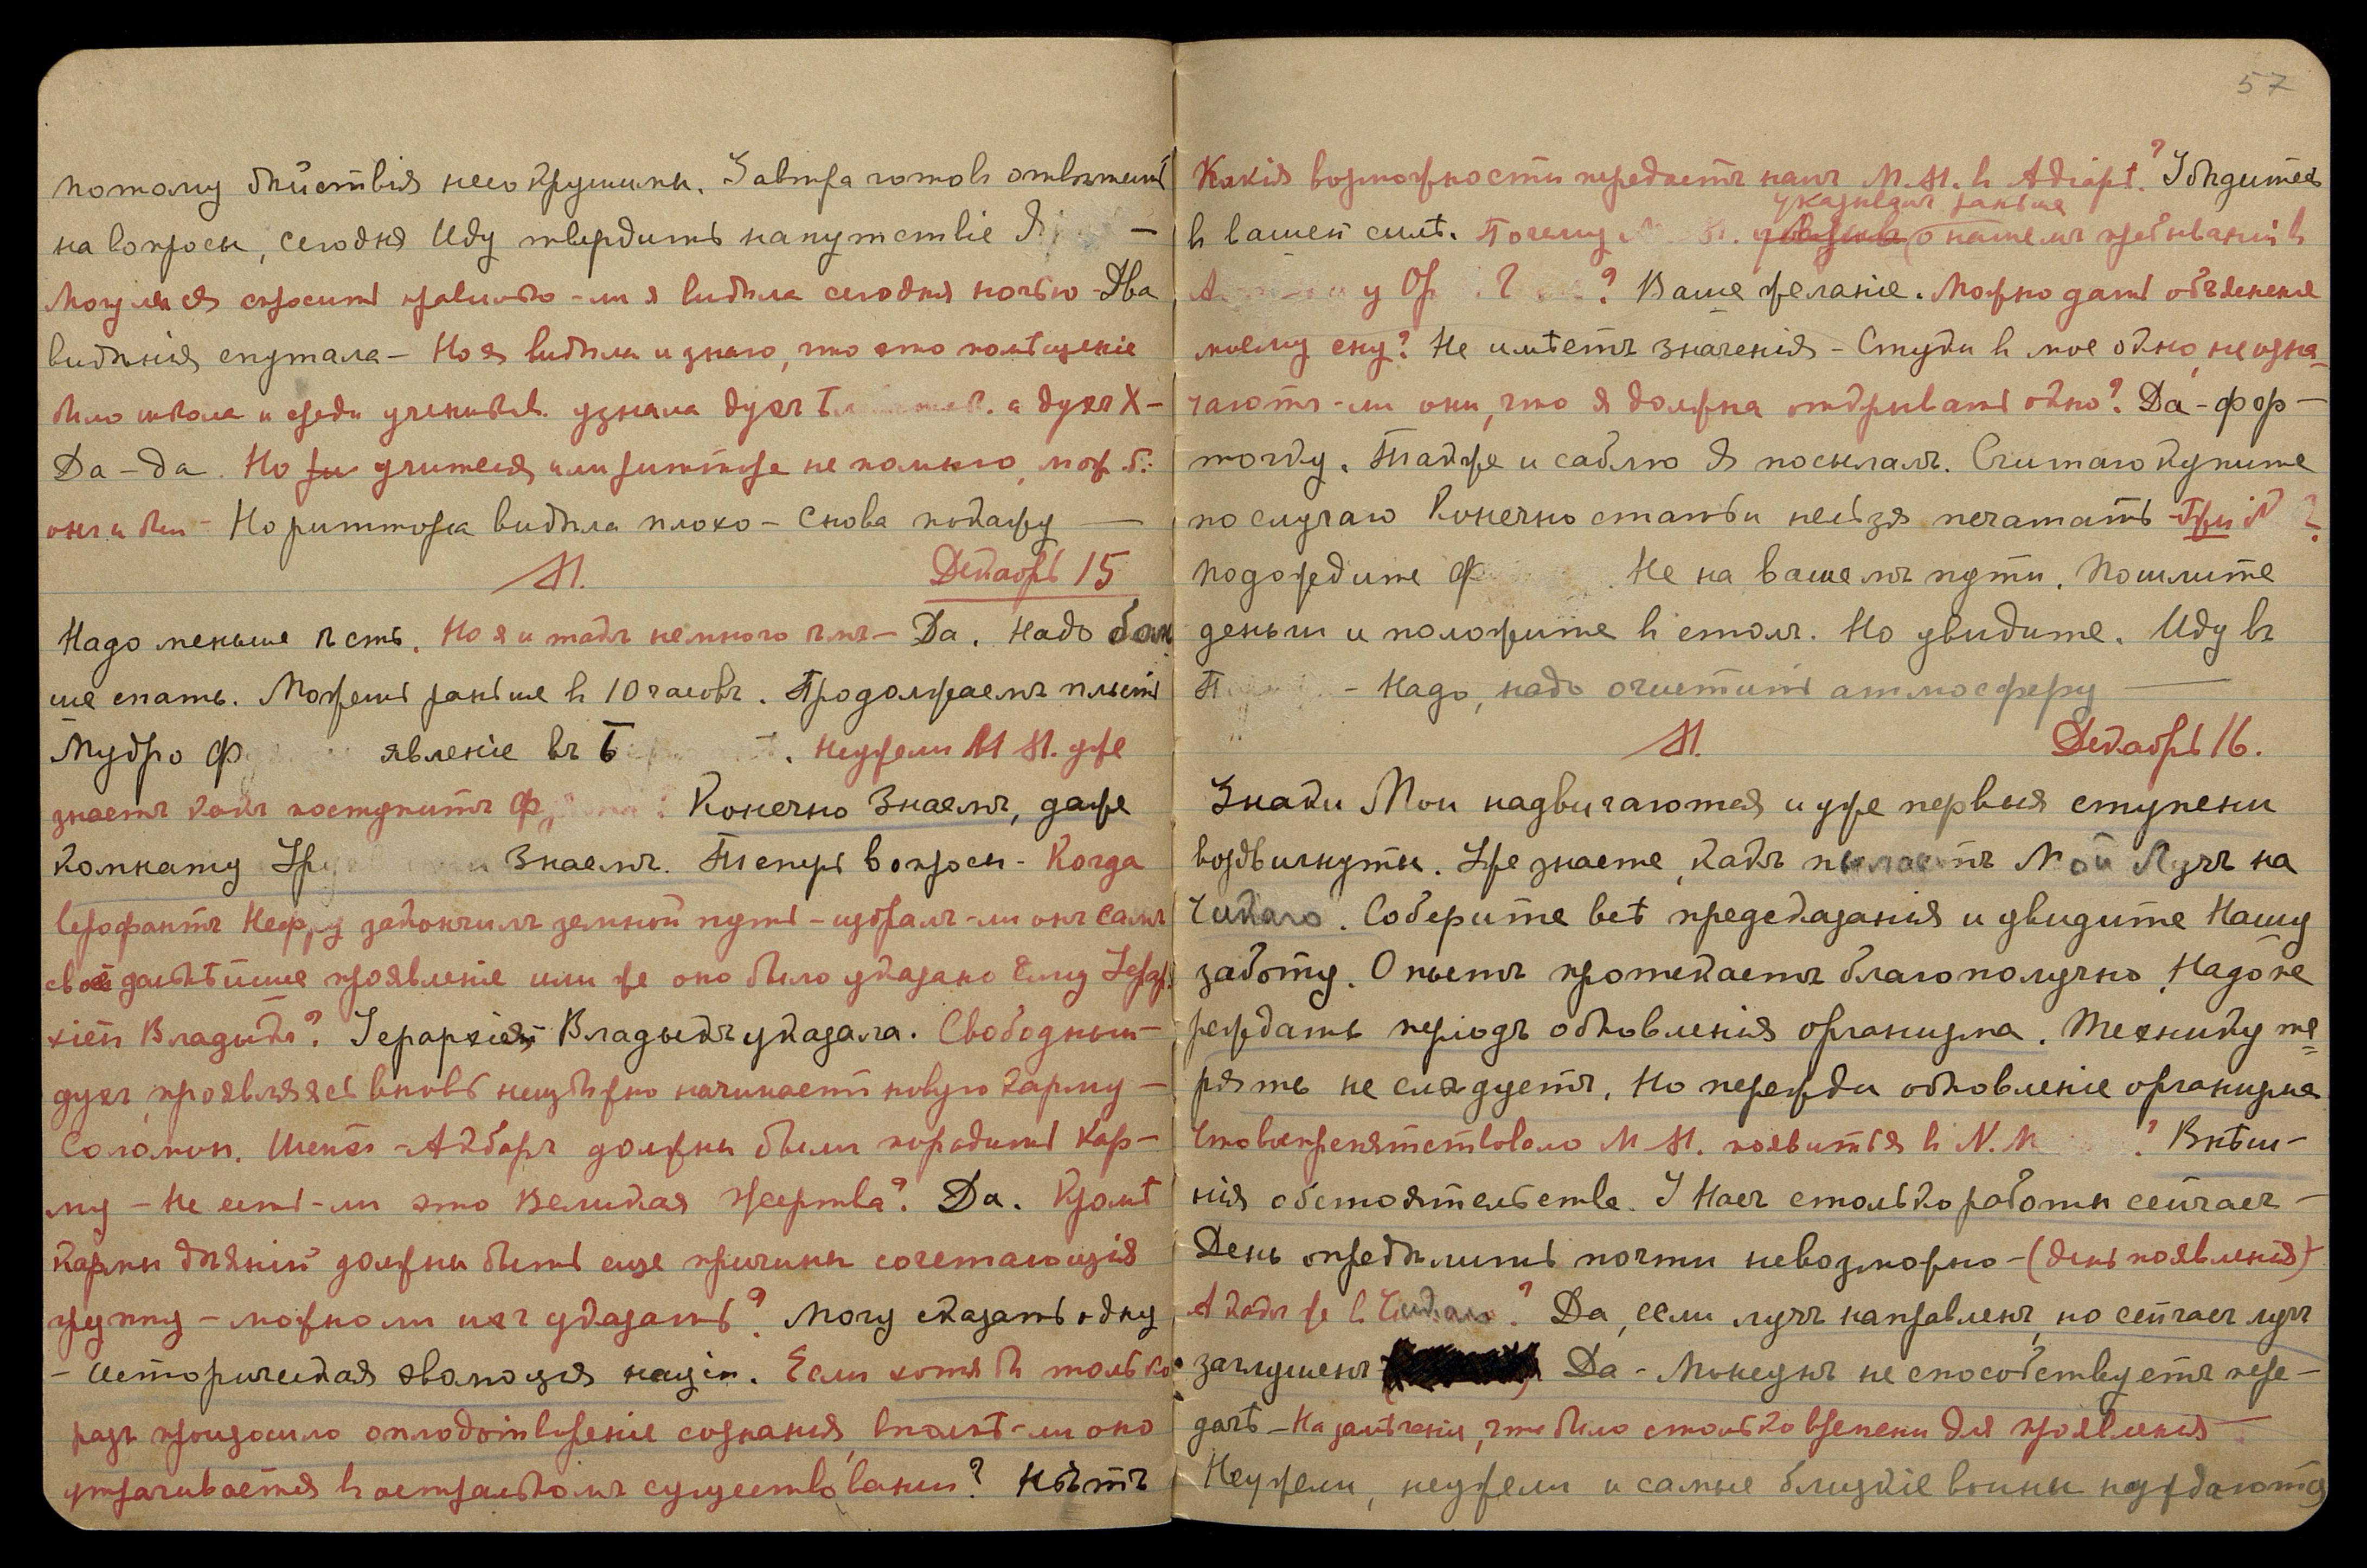 потому дѣйствія несокрушимы. Завтра готовъ отвѣтить
на вопросы, сегодня Иду твердить напутствіе
Могу ли я спросить правильно-ли я видѣла сегодня ночью - Два
видѣнія спутала - Но я видѣла и знаю, что это помѣщеніе
было школа и среди учениковъ узнала духъ а духъ Х-
Да-да. Но учителя или не помню, мож. б.
онъ и былъ - Но видѣла плохо - Снова покажу —
М. Декабрь 15
Надо меньше ѣсть. Но я и такъ немного ѣмъ - Да. Надо боль
ше спать. Можешь раньше в 10 часовъ. Продолжаемъ
Мудро Ф явленіе въ Б . Неужели М М. уже
знаетъ какъ поступитъ Ф ? Конечно Знаемъ, даже
комнату Знаемъ. Теперь вопросы - Когда
Іерофантъ закончилъ земной путь - избралъ-ли онъ самъ
свое дальнѣйшее проявленіе или же оно было указано Ему Іерар-
хіей Владыкъ? Іерархія Владыкъ указала. Свободный —
духъ, проявляясь вновь неизбѣжно начинаетъ новую карму —
Соломон. Акбаръ должны были породить кар-
му - Не есть-ли это Великая Жертва? Да. Кромѣ
кармы дѣяній должны быть еще причины сочетающія
группу - можно ли ихъ указать? Могу сказать одну
- историческая эволюція націи. Если хотя б только
разъ произошло оплодотвореніе сознанія, вполнѣ-ли оно
утрачивается в астральномъ существованіи? Нѣтъ
57
Какія возможности передастъ намъ М.М. в Адіарѣ? Убѣдитесь
указывалъ раньше
в вашей силѣ. Почему М. М. о нашемъ пребываніи в
А у ? Ваше желаніе. Можно дать объясненіе
моему сну? Не имѣетъ значенія - Стуки в мое окно, не озна-
чаютъ-ли они, что я должна открывать окно? Да - фор-
точку. Также и саблю Я посылалъ. Считаю купите
по случаю Конечно статьи нельзя печатать ?
подождите Ф . Не на вашемъ пути. Пошлите
деньги и положите в столъ. Но увидите. Иду въ
- Надо, надо очистить атмосферу —
М. Декабрь 16.
Знаки Мои надвигаются и уже первыя ступени
воздвигнуты. Уже знаете, какъ пылаетъ Мой Лучъ на
Чикаго. Соберите всѣ предсказанія и увидите Нашу
заботу. Опытъ протекаетъ благополучно. Надо пе
реждать періодъ обновленія организма. Технику те=
рять не слѣдуетъ. Но пережди обновленіе организма
Что воспрепятствовало М М. появиться в N. ? Внѣш-
нія обстоятельства. У Насъ столько работы сейчасъ —
День опредѣлить почти невозможно - (день появленія)
А какъ же в Чикаго? Да, если лучъ направленъ, но сейчасъ лучъ
заглушенъ Да - не способствуетъ пере-
дачѣ - На замѣчаніе, что было столько времени для проявленія —
Неужели, неужели и самые близкіе воины нуждаются